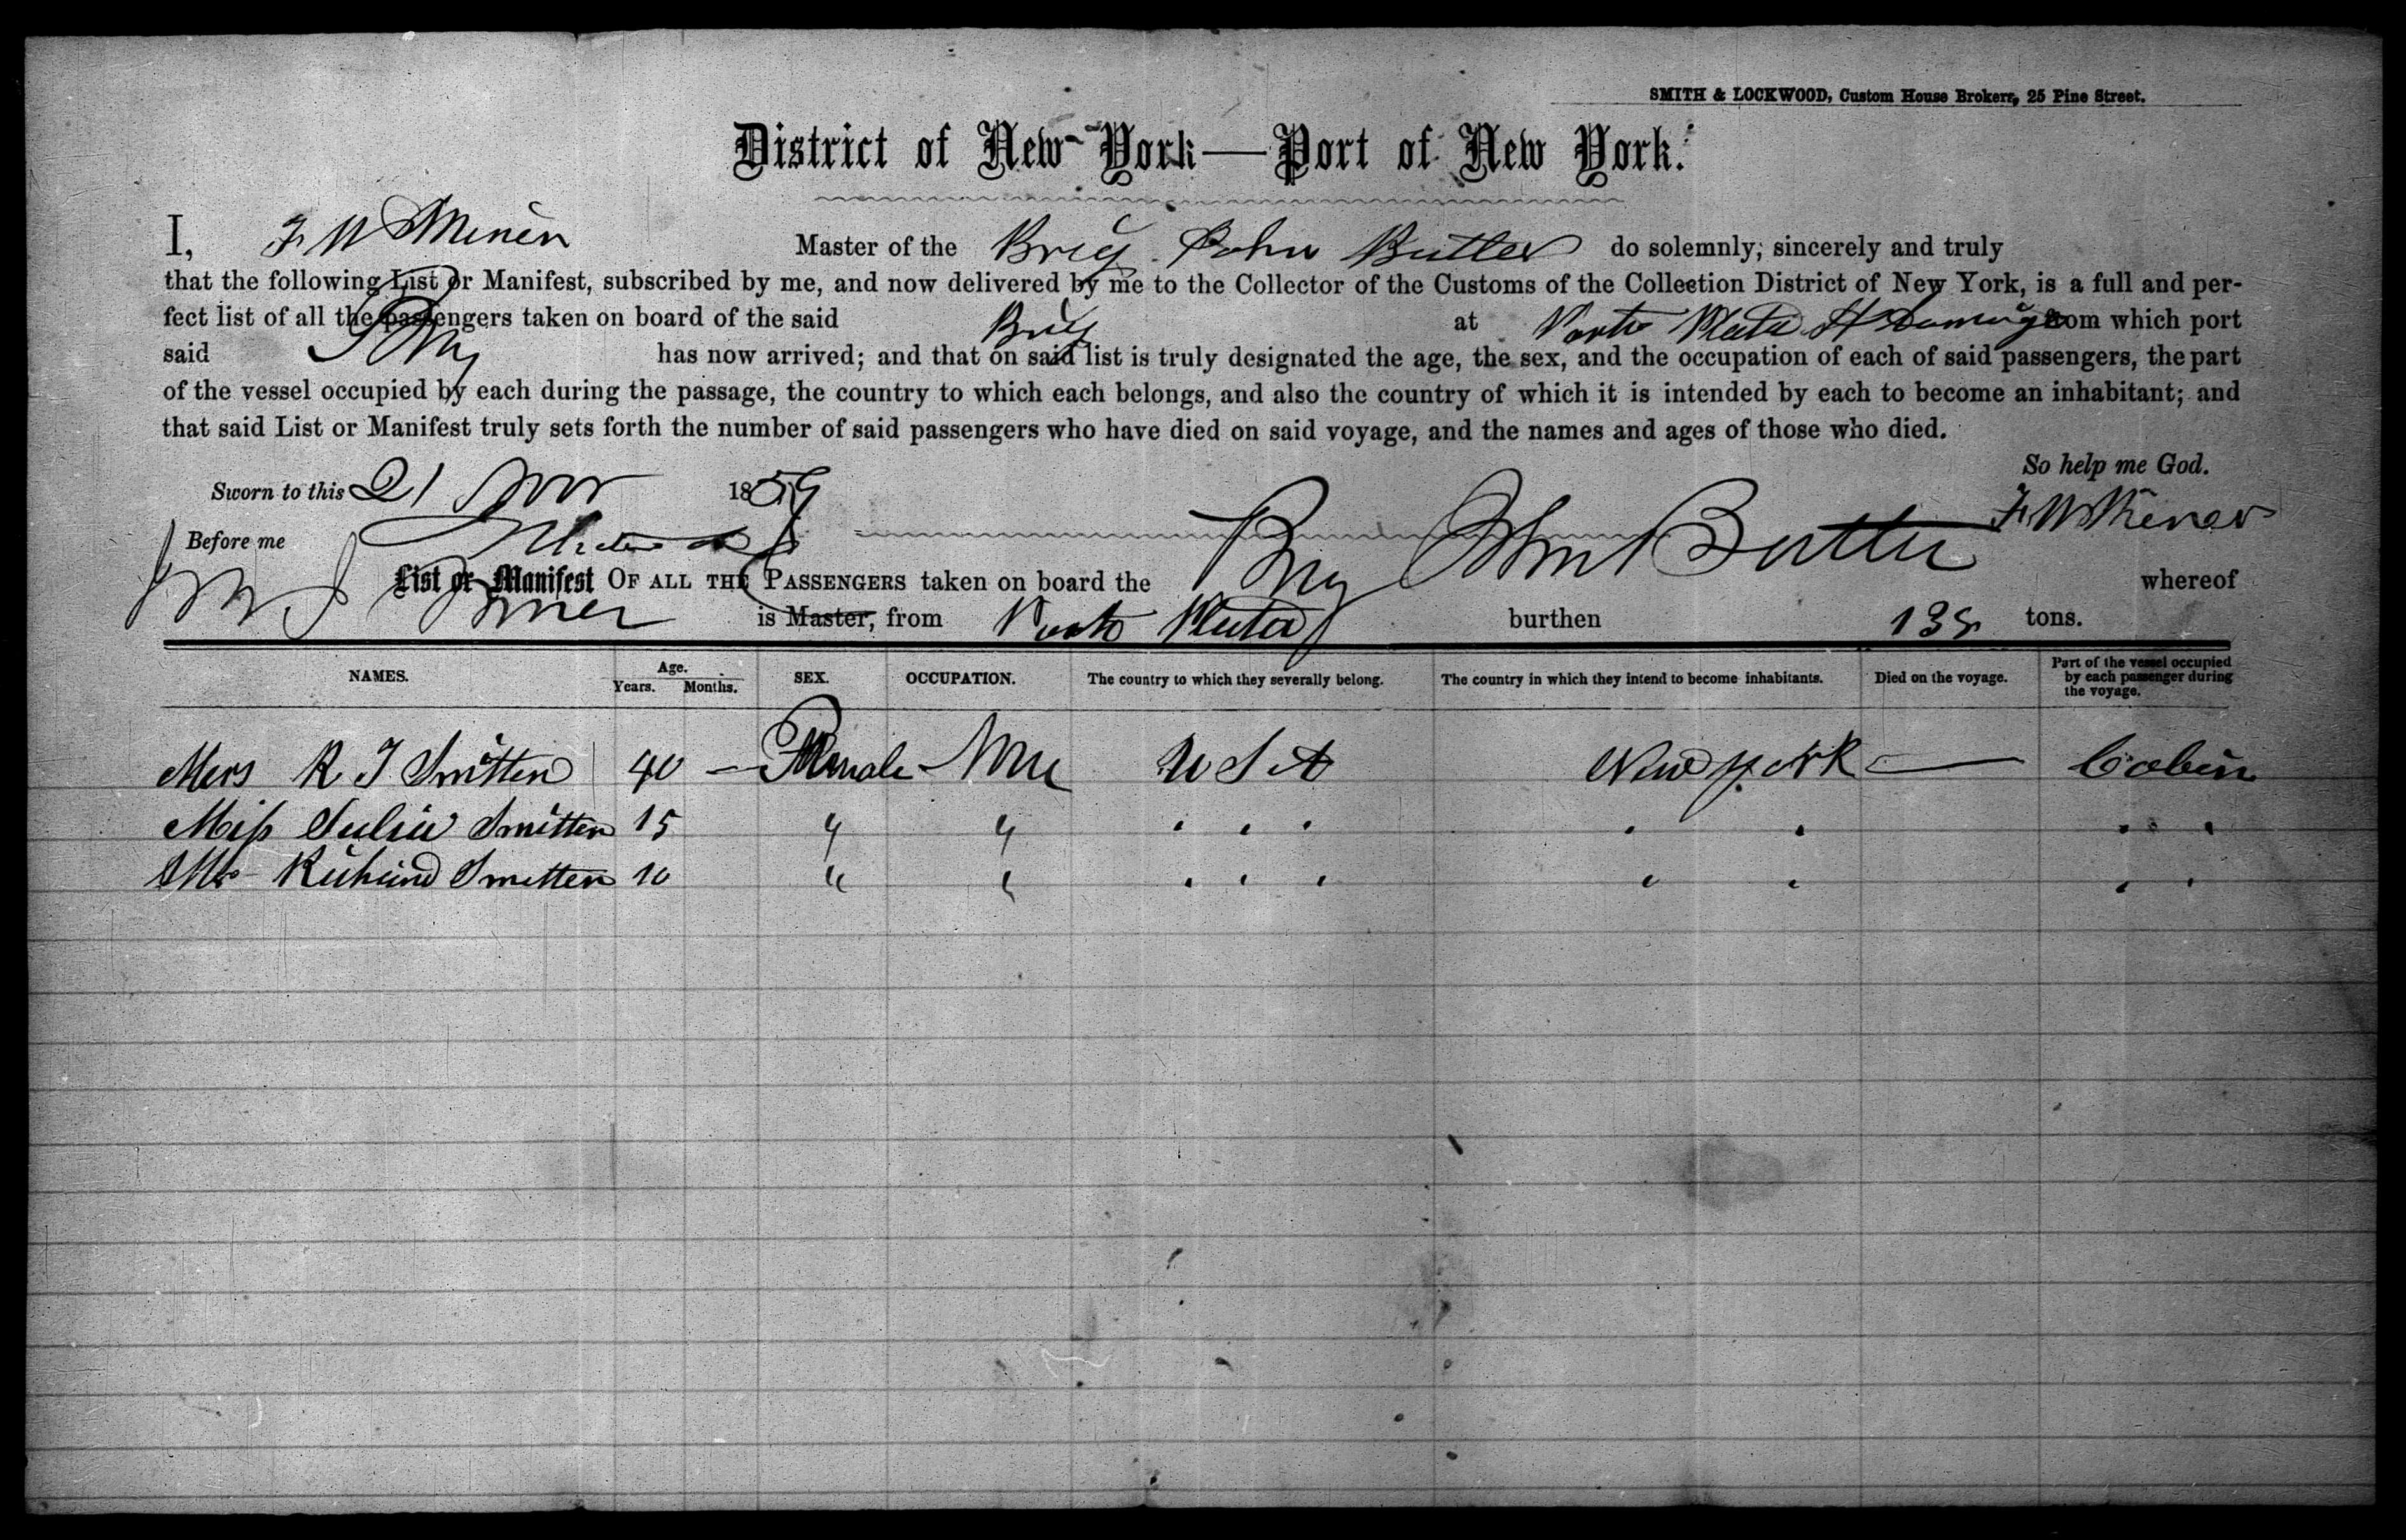 SMITH & LOCKWOOD, Custom House Brokers, 25 Pine Street.
District of New-York—Port of New York.
I, F. W Miner Master of the Brig John Butler do solemnly, sincerely and truly
that the following List or Manifest, subscribed by me, and now delivered by me to the Collector of the Customs of the Collection District of New York, is a full and per-
fect list of all the passengers taken on board of the said Brig at Porto Plata St Domingo from which port
said Brig has now arrived; and that on said list is truly designated the age, the sex, and the occupation of each of said passengers, the part
of the vessel occupied by each during the passage, the country to which each belongs, and also the country of which it is intended by each to become an inhabitant; and
that said List or Manifest truly sets forth the number of said passengers who have died on said voyage, and the names and ages of those who died.
So help me God.
Sworn to this 21 Nov 1859
F. W Miner
Before me
List or Manifest OF ALL THE PASSENGERS taken on board the Brig John Butler whereof
Miner is Master, from Porto Plata burthen 138 tons.
NAMES. Age. Years. Months. SEX. OCCUPATION. The country to which they severally belong. The country in which they intend to become inhabitants. Died on the voyage. Part of the vessel occupied by each passenger during the voyage.
Mrs R T Smitten 40 — Female None U S A New york — Cabin
Miss Julia Smitten 15 " " " " " " " " "
Mr Richard Smitten 10 " " " " " " " " "